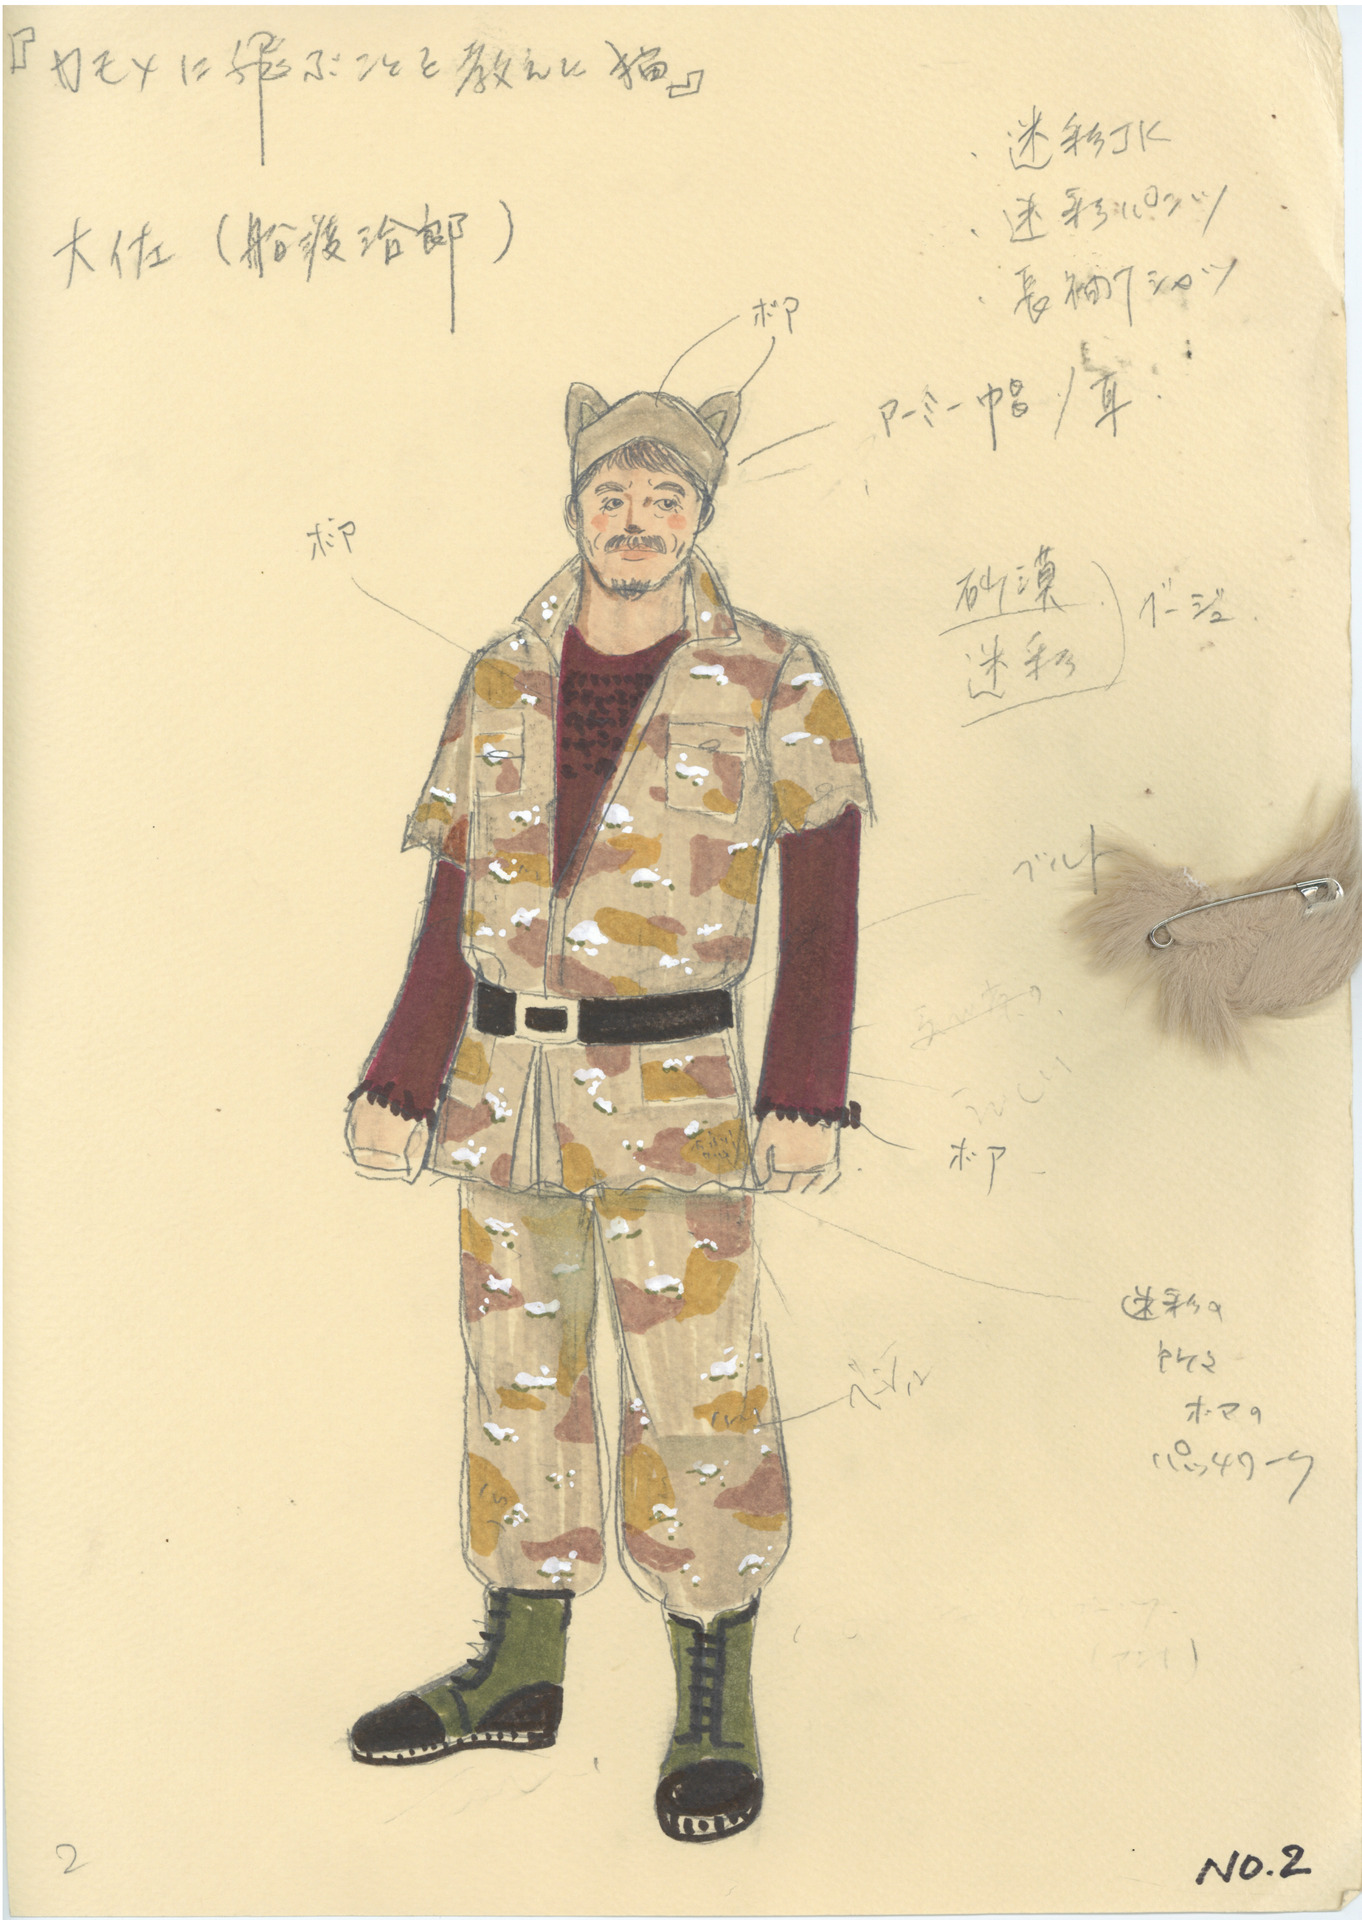 『カモメに飛ぶことを教えた猫』
大佐(船渡治郎)
・迷彩JK
・迷彩パンツ
・長袖Tシャツ
ボア
アーミー帽/耳
ボア
砂漠
迷彩
ベージュ
ベルト
ボア
迷彩の
ボアの
パッチワーク
2
NO.2